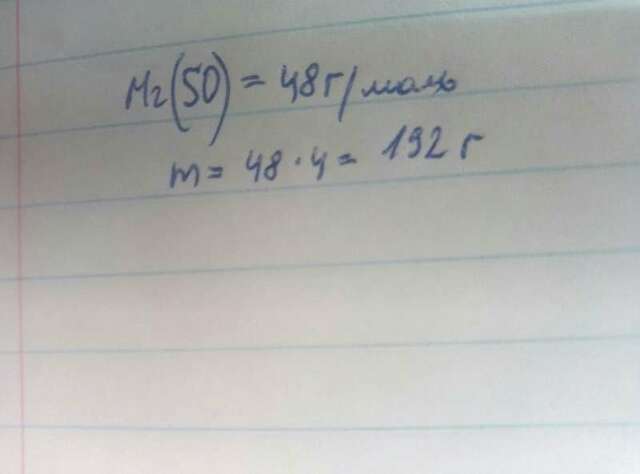 Mr(SO) = 48 г/моль
m = 48 · 4 = 192 г